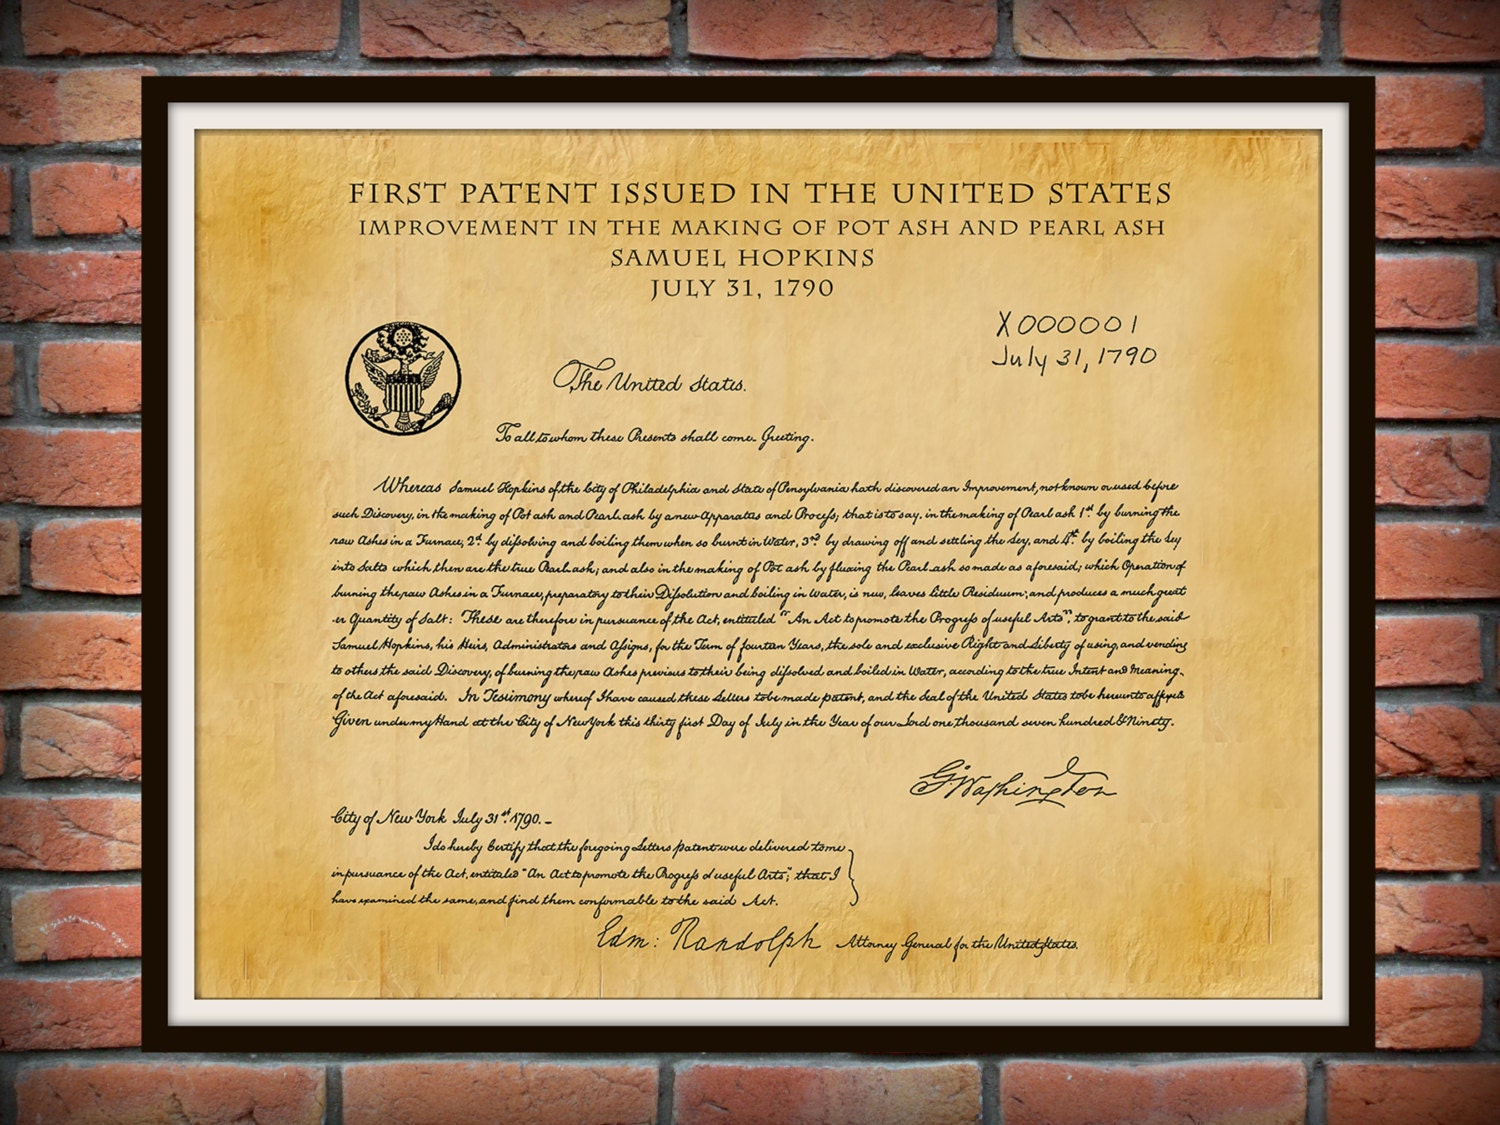 FIRST PATENT ISSUED IN THE UNITED STATES
IMPROVEMENT IN THE MAKING OF POT ASH AND PEARL ASH
SAMUEL HOPKINS
JULY 31, 1790
X000001
July 31, 1790
The United States.
To all to whom these Presents shall come. Greeting.
Whereas Samuel Hopkins of the City of Philadelphia and State of Pensylvania hath discovered an Improvement, not known or used before
such Discovery, in the making of Pot ash and Pearl ash by a new Apparatus and Process; that is to say, in the making of Pearl ash 1st. by burning the
raw Ashes in a Furnace, 2d. by dissolving and boiling them when so burnt in Water, 3rd. by drawing off and settling the Ley, and 4th. by boiling the Ley
into Salts which then are the true Pearl ash; and also in the making of Pot ash by fluxing the Pearl ash so made as aforesaid; which Operation of
burning the raw Ashes in a Furnace, preparatory to their Dissolution and boiling in Water, is new, leaves little Residuum; and produces a much great
-er Quantity of Salt: These are therefore in pursuance of the Act, entituled "An Act to promote the Progress of useful Arts", to grant to the said
Samuel Hopkins, his Heirs, Administrators and Assigns, for the Term of fourteen Years, the sole and exclusive Right and Liberty of using, and vending
to others the said Discovery, of burning the raw Ashes previous to their being dissolved and boiled in Water, according to the true Intent and Meaning
of the Act aforesaid. In Testimony whereof I have caused these Letters to be made patent, and the Seal of the United States to be hereunto affixed
Given under my Hand at the City of New York this thirty first Day of July in the Year of our Lord one thousand seven hundred & Ninety.
G Washington
City of New York July 31st. 1790. -
I do hereby Certify that the foregoing Letters patent were delivered to me
in pursuance of the Act, entituled "An Act to promote the Progress of useful Arts"; that I
have examined the same, and find them conformable to the said Act.
Edm: Randolph Attorney General for the United States.